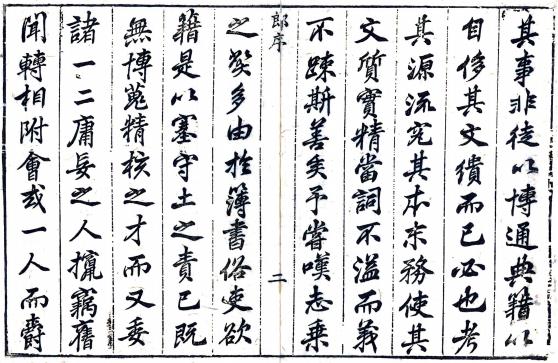 其事非徒以博通典籍以
自侈其文繢而已必也考
其源流究其本末務使其
文質實精當詞不溢而義
不踈斯善矣予嘗嘆志乗
郎序
二
之弊多由於簿書俗吏欲
籍是以塞守土之責已既
無博蒐精核之才而又委
諸一二庸妄之人攛竊舊
聞轉相附會或一人而